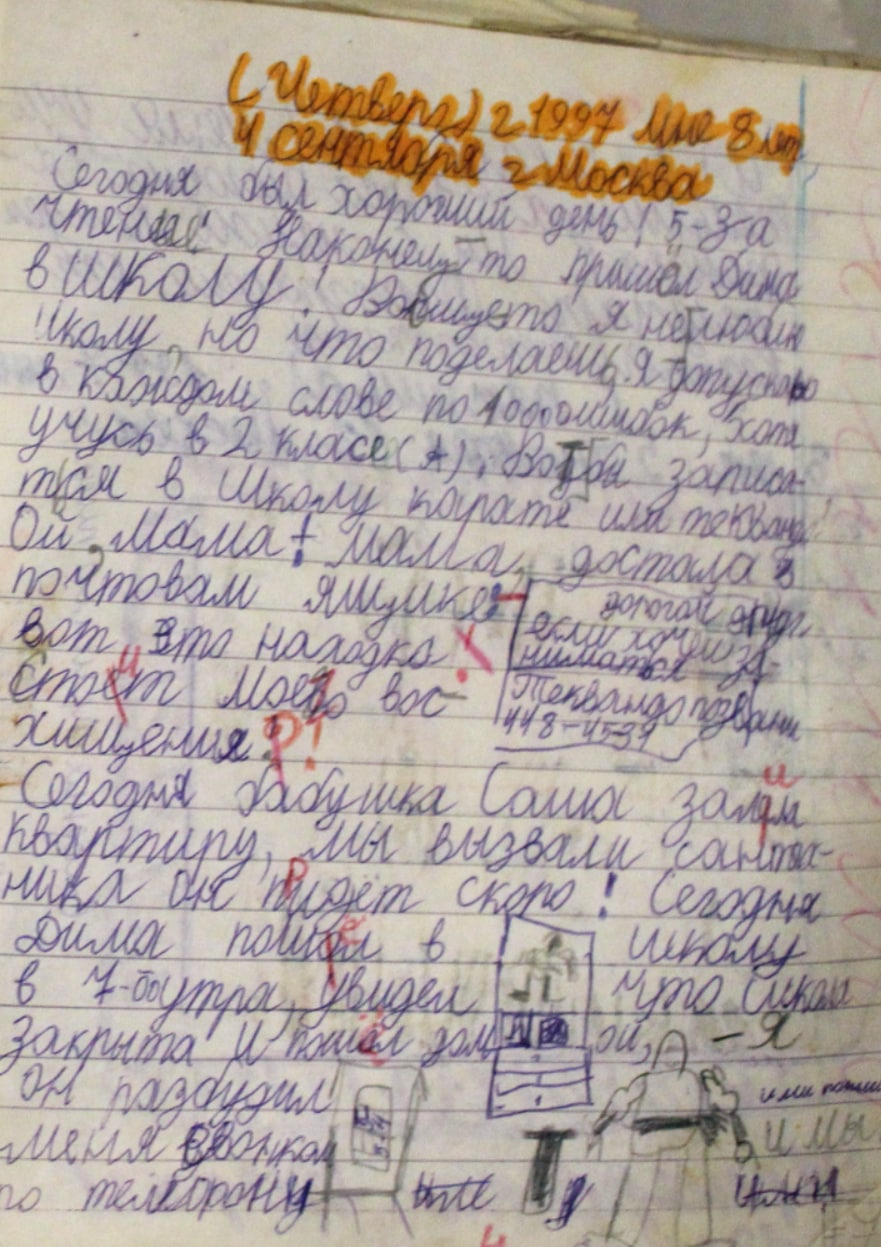 (Четверг) г 1997 Мне 8 лет
4 сентября г Москва
Сегодня был хороший день! 5-за
чтение! Наконецто пришёл Дима
в школу! Вобщето я нелюблю
школу, но что поделаешь. Я допускаю
в каждом слове по 1000 ошибок, хотя
учусь в 2 класе (А). Вот бы записа-
тся в школу каратэ или теквандо!
Ой, Мама! Мама, достала в
почтовам ящике:
дорогой друг
вот это находка!
если хочеш за-
ниматься
стоит моего вос-
Теквандо позвони
448-45-39
хищения!
Сегодня бабушка Саша залила
квартиру, мы вызвали сантех-
ника он придёт скоро! Сегодня
Дима пошел в школу
в 7-бы утра, увидел что школа
закрыта и пошёл домой, - Я
он разбудил
или
меня звонком
и мы
по телефону